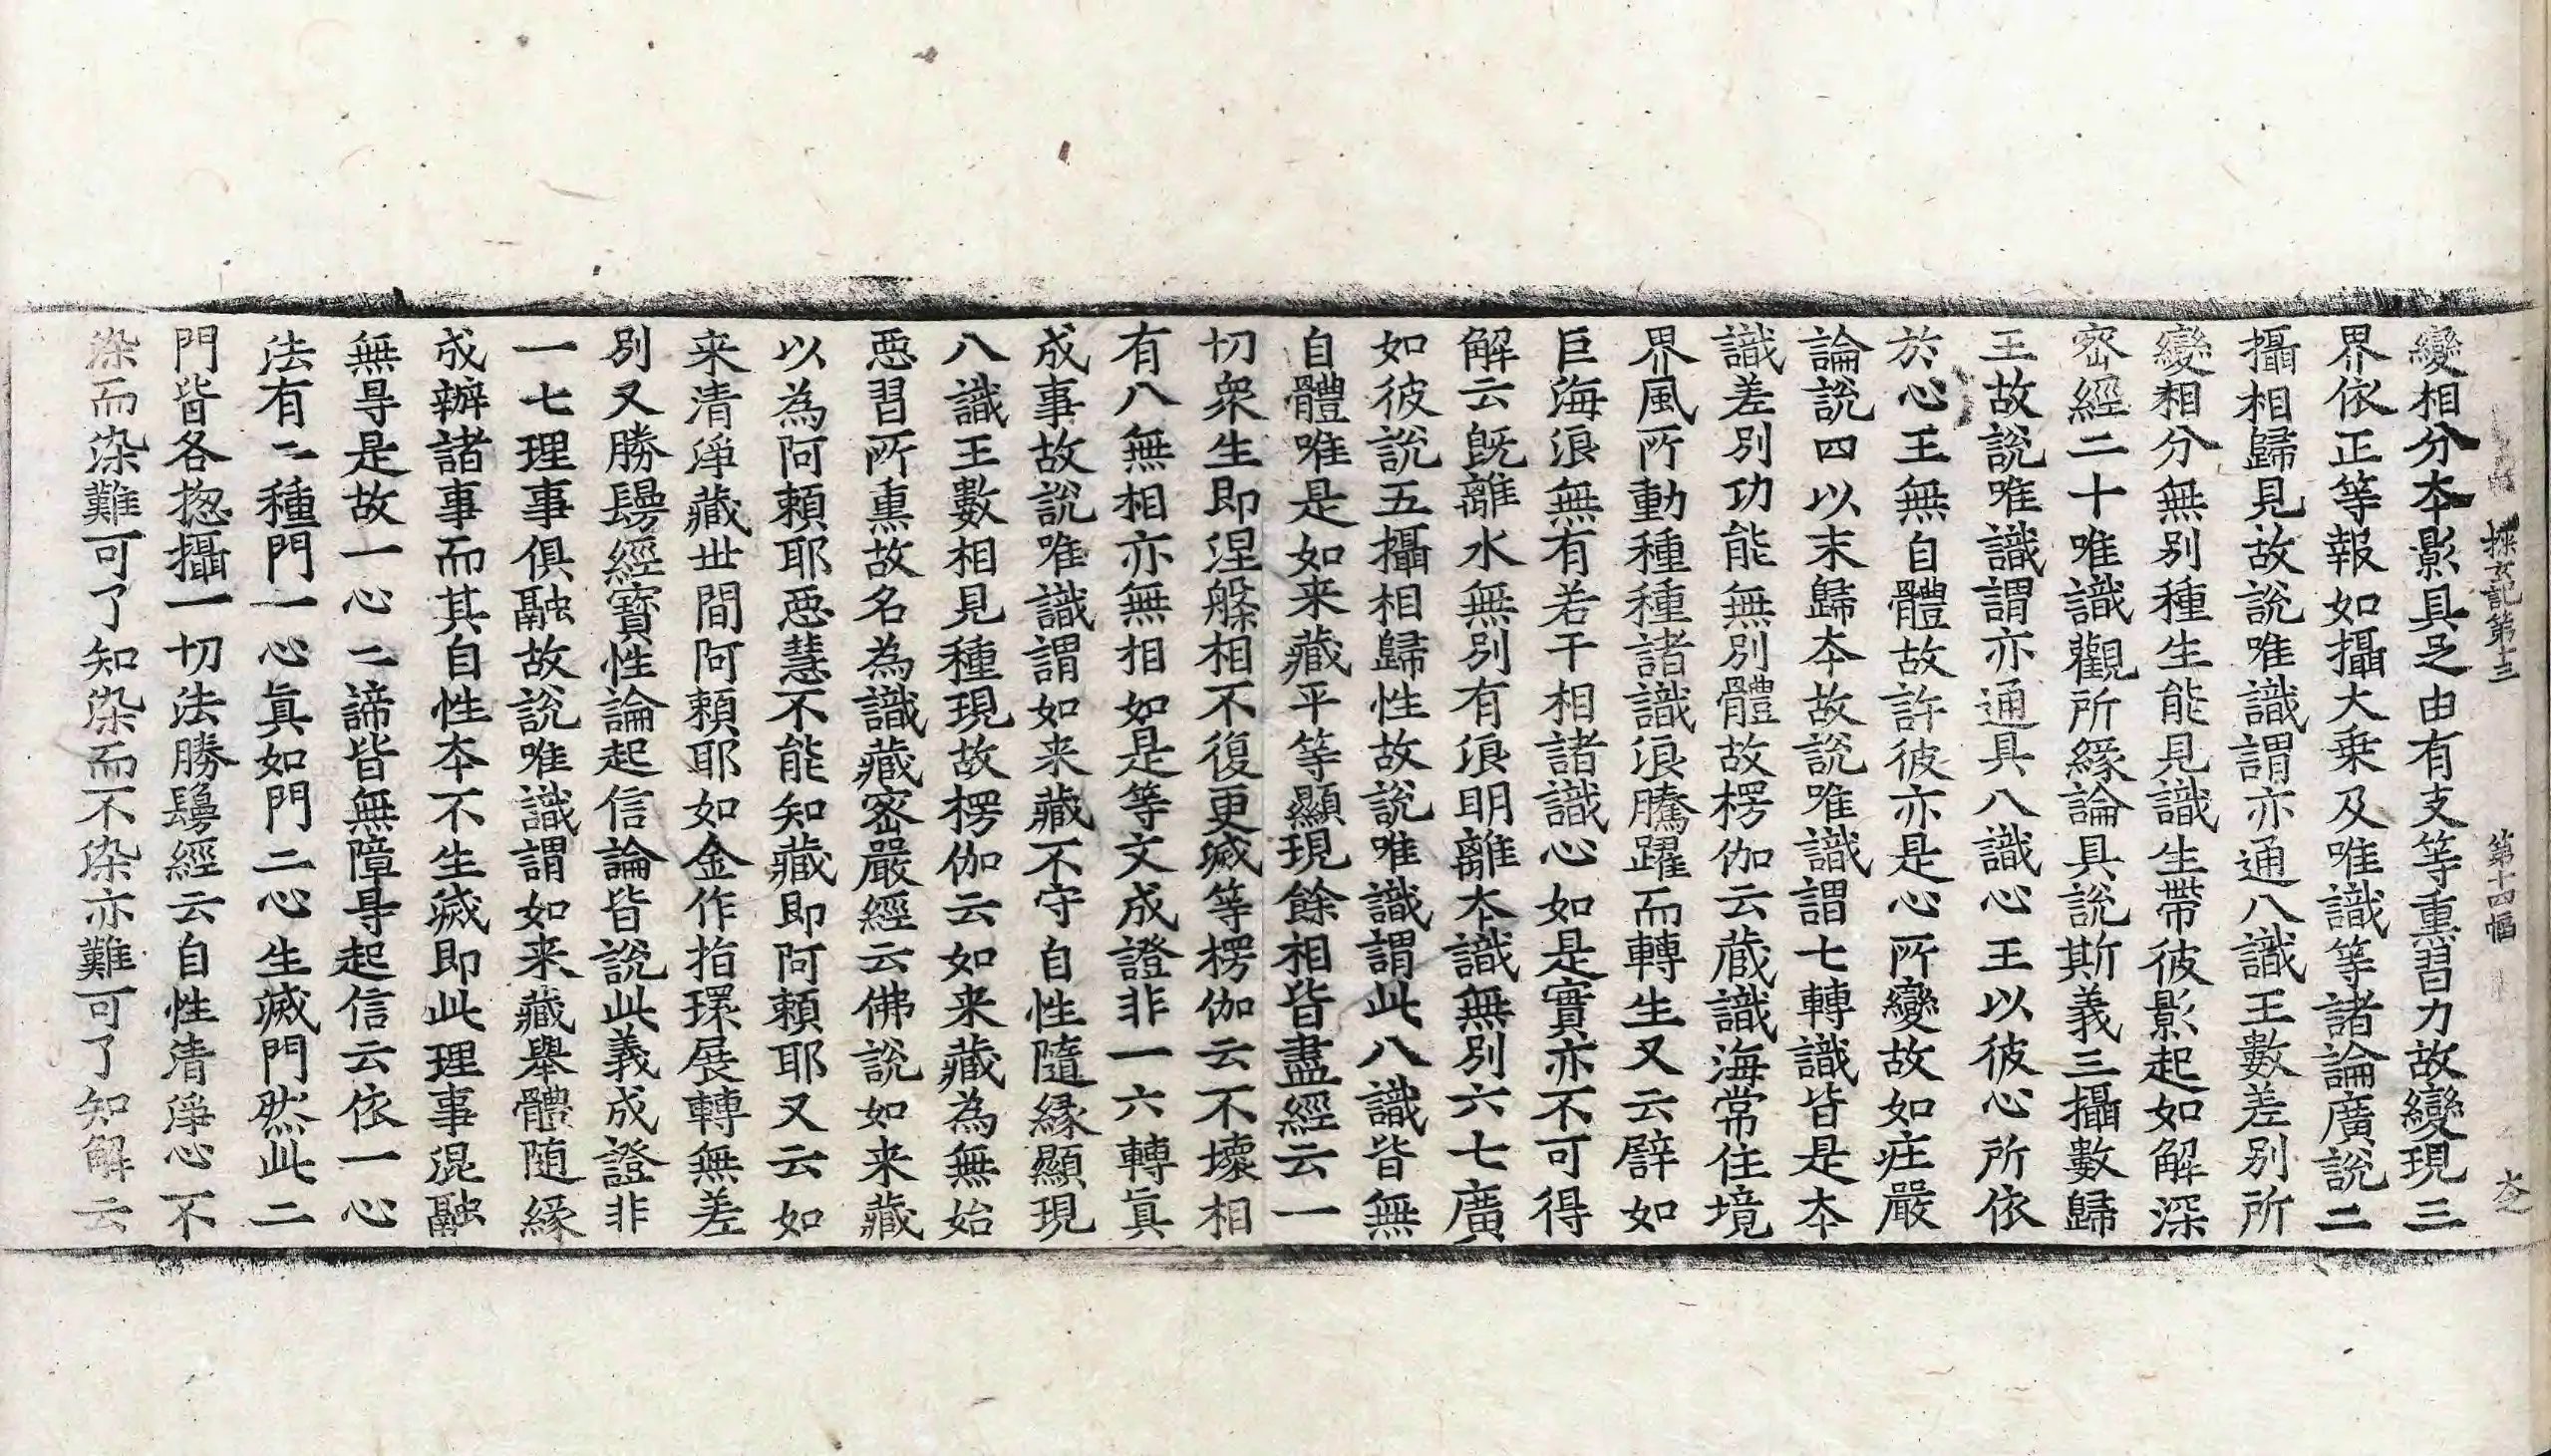 探玄記第十三　第十四幅
變相分本影具足由有支等熏習力故變現三
界依正等報如攝大乗及唯識等諸論廣說二
攝相歸見故說唯識謂亦通八識王數差別所
變相分無別種生能見識生帶彼影起如解深
密經二十唯識觀所緣論具說斯義三攝數歸
王故說唯識謂亦通具八識心王以彼心所依
於心王無自體故許彼亦是心所變故如庄嚴
論說四以末歸本故說唯識謂七轉識皆是本
識差別功能無別體故楞伽云蔵識海常住境
界風所動種種諸識浪騰躍而轉生又云譬如
巨海浪無有若干相諸識心如是實亦不可得
解云旣離水無別有浪明離本識無別六七廣
如彼說五攝相歸性故說唯識謂此八識皆無
自體唯是如来藏平等顯現餘相皆盡經云一
切衆生即涅槃相不復更滅等楞伽云不壞相
有八無相亦無相如是等文成證非一六轉真
成事故說唯識謂如来藏不守自性隨緣顯現
八識王數相見種現故楞伽云如来藏為無始
惡習所熏故名為識藏密嚴經云佛說如来藏
以為阿賴耶惡慧不能知藏即阿賴耶又云如
来清淨藏世間阿賴耶如金作指環展轉無差
別又勝鬘經寶性論起信論皆說此義成證非
一七理事俱融故說唯識謂如来藏舉體随緣
成辦諸事而其自性本不生滅即此理事混融
無㝵是故一心二諦皆無障㝵起信云依一心
法有二種門一心真如門二心生滅門然此二
門皆各揔攝一切法勝鬘經云自性清淨心不
染而染難可了知染而不染亦難可了知解云